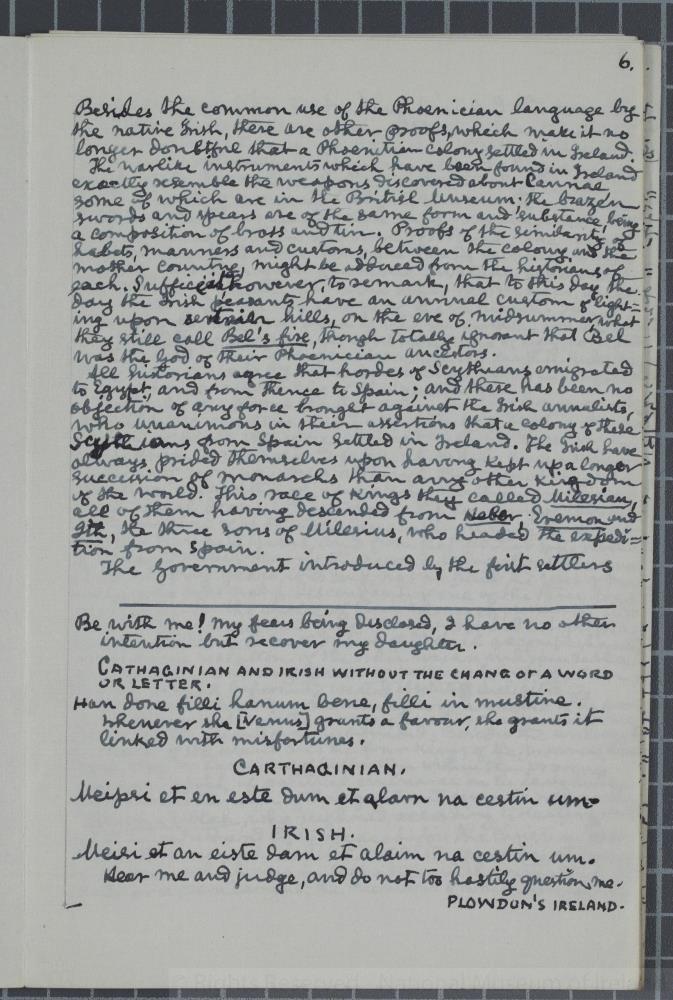 6.
Besides the common use of the Phoenician language by
the native Irish, there are other proofs, which make it no
longer doubtful that a Phoenitian colony settled in Ireland.
The warlike instruments which have been found in Ireland
exactly resemble the weapons discovered about Cannae
some of which are in the British Museum: the brazen
swords and spears are of the same form and substance, being
a composition of brass and tin. Proofs of the similarity of
habits, manners and customs, between the colony and the
mother country, might be adduced from the historians of
each. Sufficeth however, to remark, that to this day the
day the Irish peasants have an annual custom of light=
ing upon certain hills, on the eve of midsummer, what
they still call Bel's fire, though totally ignorant that Bel
was the God of their Phoenician ancestors.
All historians agree that hordes of Scythians emigrated
to Egypt, and from thence to Spain; and there has been no
objection of any force brought against the Irish annalists,
who unanimous in their assertions that a colony of these
Scythians from Spain settled in Ireland. The Irish have
always prided themselves upon having kept up a longer
succession of monarchs than any other kingdom
of the world. This race of Kings they called Milesian,
all of them having descended from Heber, Eremon and
Ith, the three sons of Milesius, who headed the expedi=
tion from Spain.
The Government introduced by the first settlers
Be with me! my fears being disclosed, I have no other
intention but recover my daughter.
CATHAGINIAN AND IRISH WITHOUT THE CHANG OF A WORD
OR LETTER.
Han done filli hanum bene, filli in mustine.
Whenever she [Venus] grants a favour, she grants it
linked with misfortunes.
CARTHAGINIAN.
Meipsi et en este dum et alavn na cestin um.
IRISH.
Meisi et an eiste dam et alaim na cestin um.
Hear me and judge, and do not too hastily question me.
PLOWDON'S IRELAND.